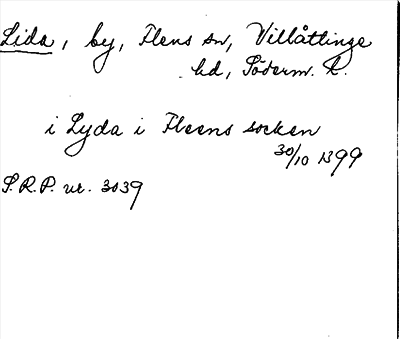 Lida, by, Flens sn, Villåttinge
hd, Söderm. l.
i Lyda i Fleens socken
30/10 1399
S.R.P. nr. 3039